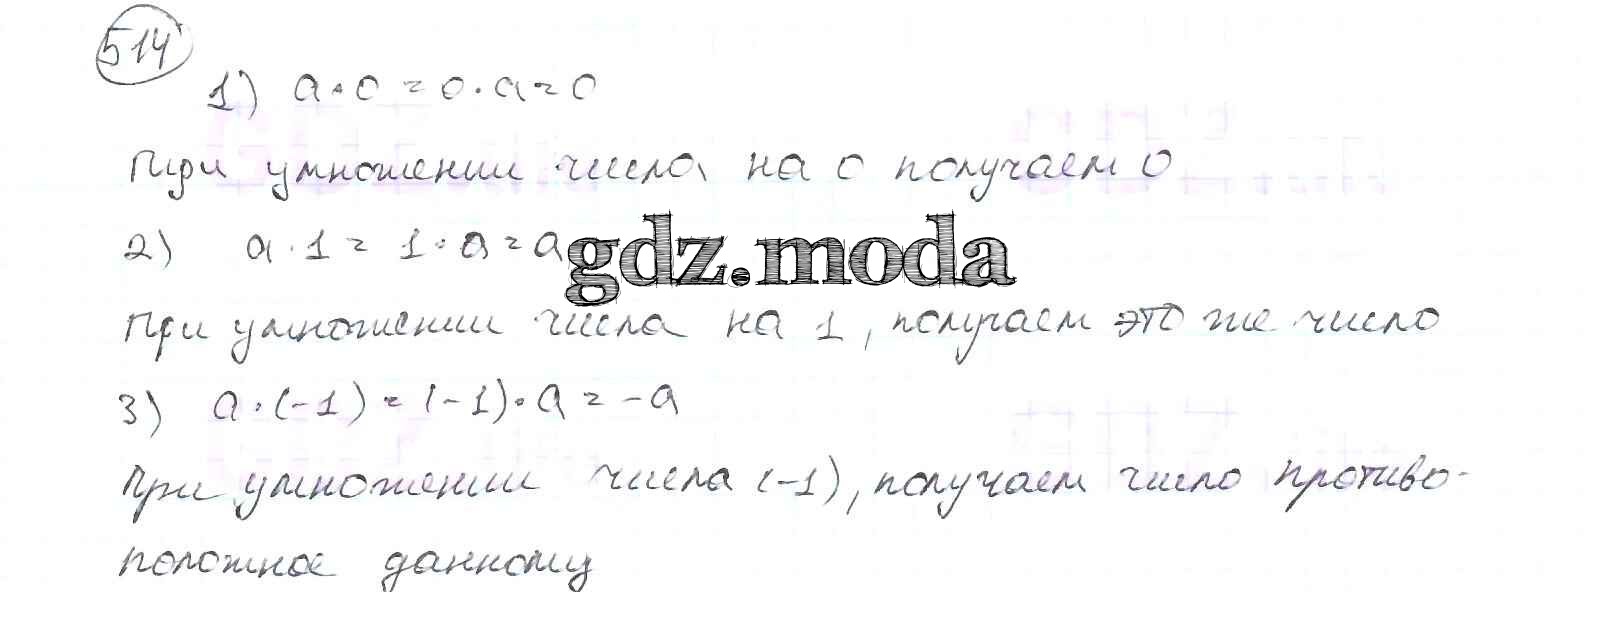 514
1) a·0=0·a=0
При умножении числа на 0 получаем 0
2) a·1=1·a=a
gdz.moda
При умножении числа на 1, получаем это же число
3) a·(-1)=(-1)·a=-a
При умножении числа (-1), получаем число противо-
положное данному